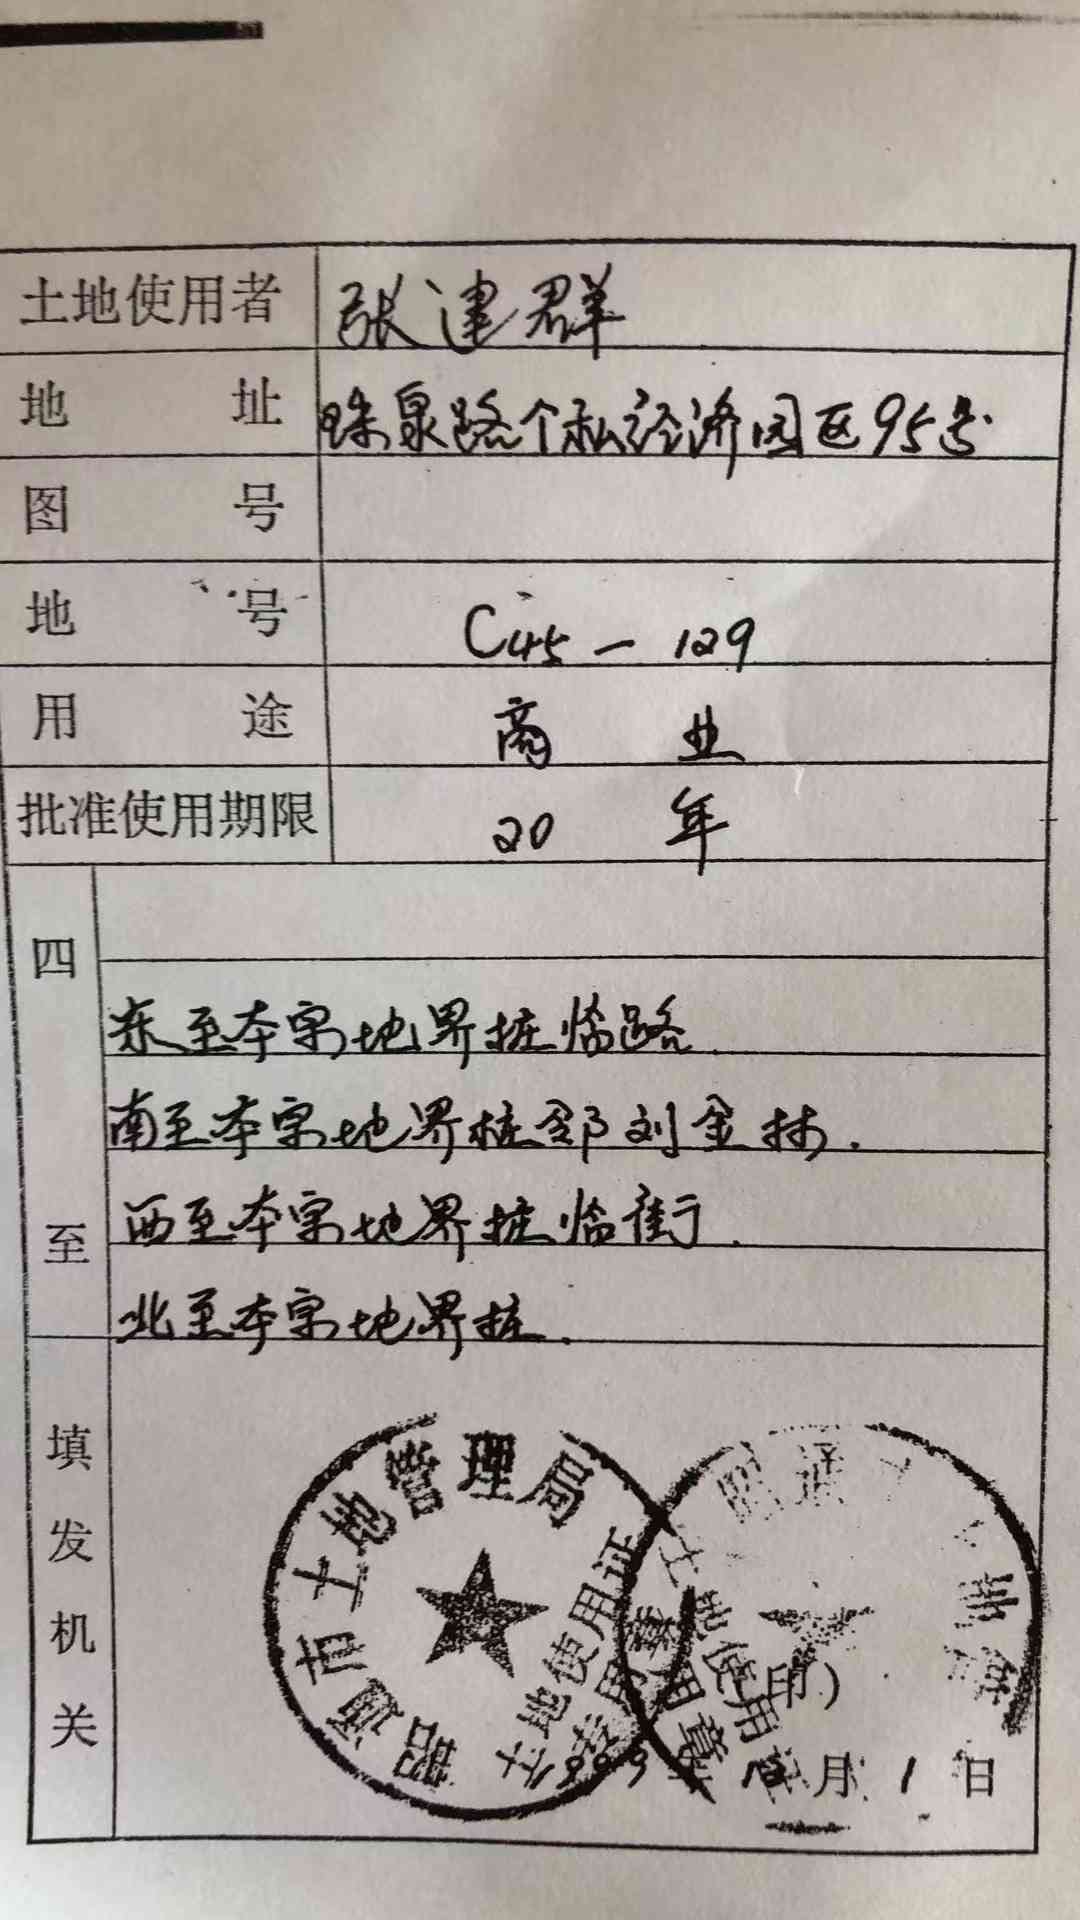 土地使用者 张建群
地址 珠泉路个私经济园区95号
图号
地号 C45-129
用途 商业
批准使用期限 20年
四至
东至本宗地界桩临路
南至本宗地界桩邻刘金林.
西至本宗地界桩临街.
北至本宗地界桩.
填发机关
昭通市土地管理局
土地使用证
专用章
昭通
土地使用证
专用章
印)
月1日